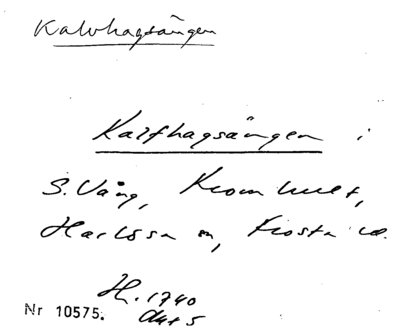 Kalvhagsängen
Kalfhagsängen i
S. Vång, Kromhult,
Harlösa sn, Frosta hd.
H. 1740
Akt 5
Nr 10575.